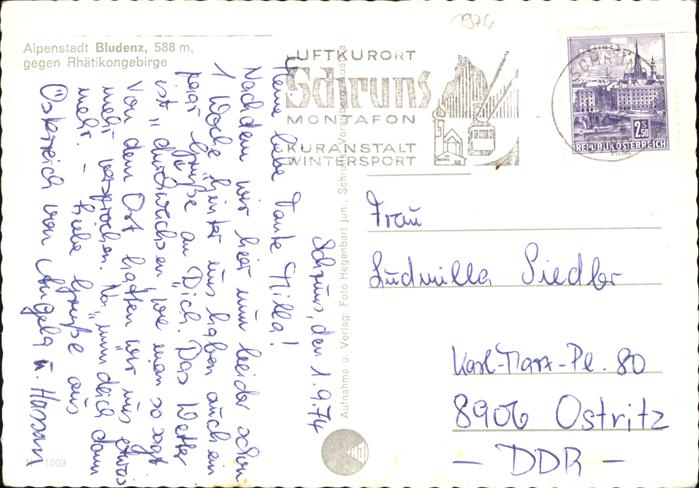 1974
Alpenstadt Bludenz, 588 m,
gegen Rhätikongebirge
LUFTKURORT
Schruns
MONTAFON
KURANSTALT
WINTERSPORT
2.50
REPUBLIK ÖSTERREICH
Schruns, den 1.9.74
Meine liebe Tante Milla!
Nachdem wir hier nun leider schon
1 Woche hinter uns haben auch ein
paar Grüße an Dich. Das Wetter
ist "durchwachsen" wie man so sagt.
Von dem Ort hatten wir uns etwas
mehr versprochen. Na, nun dich dann
mehr. – Liebe Grüße aus
Österreich von Angela u.
Frau
Ludmilla Siedler
Karl-Marx-Pl. 80
8906 Ostritz
– DDR –
Aufnahme u. Verlag: Foto Hegenbart jun., Schruns, Vorarlberg, Austria
1003